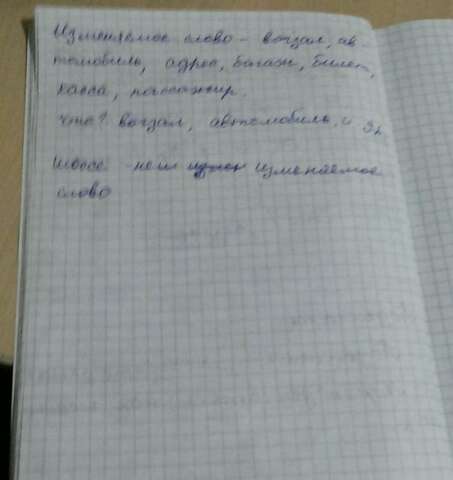 Изменяемое слово - вокзал, ав-
томобиль, адрес, багаж, билет,
касса, пассажир.
Что? вокзал, автомобиль, и
Шоссе - неи изменяемое
слово